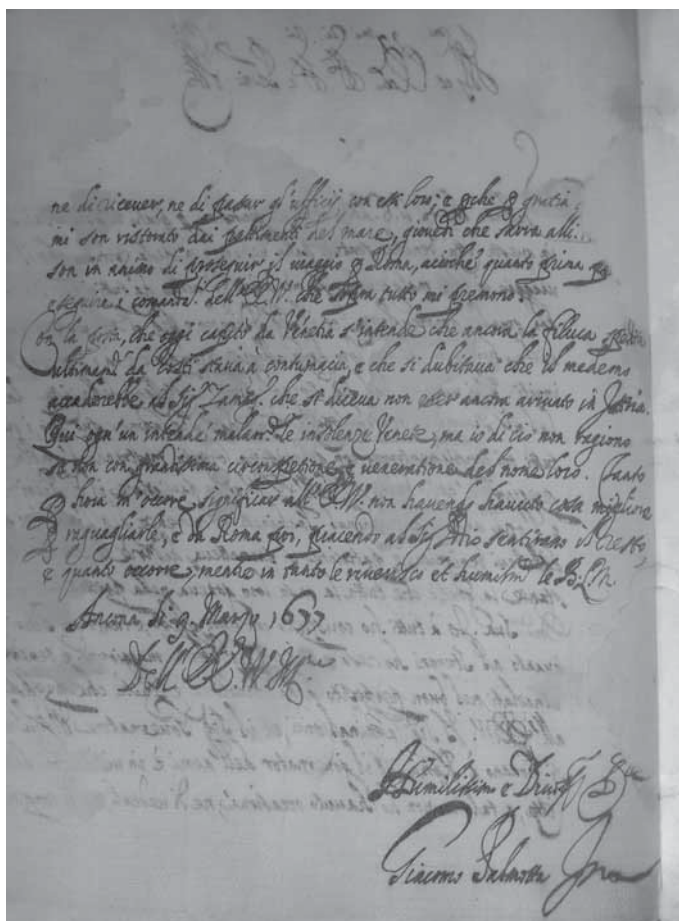 ne di ricever, ne di passar gl'ufficij con essi loro; e perche per gratia
mi son ristorato dai patimenti del mare, giovedi che sarà alli
son in animo di proseguir il viaggio per Roma, acioche quanto prima
eseguire i comand.ti dell' EE.VV. che sopra tutto mi premono
Con la posta, che oggi capitò da Venetia s'intende che ancora la filuca
ultimam.te da costì stava à contumacia, e che si dubitava che il medemo
accaderebbe al Sig.r che si diceva non esser ancora arivato in Istria.
Qui ogn'un intende malam.te le insolenze Venete, ma io di ciò non ragiono
se non con grandissima circonspetione e veneratione del nome loro. Tanto
per hora m'occore significar all' EE.VV. non havendo havuto cosa migliore
ragguagliarle, e da Roma poi, piacendo al Sig.r Dio sentirano il resto,
e quanto occorre, mentre in tanto le riverisco et humilm.te le B. le M.
Ancona, li 9. Marzo 1633
Dell' EE.VV. Ill.me
Humilissimo e Devot.
Giacomo Palmotta